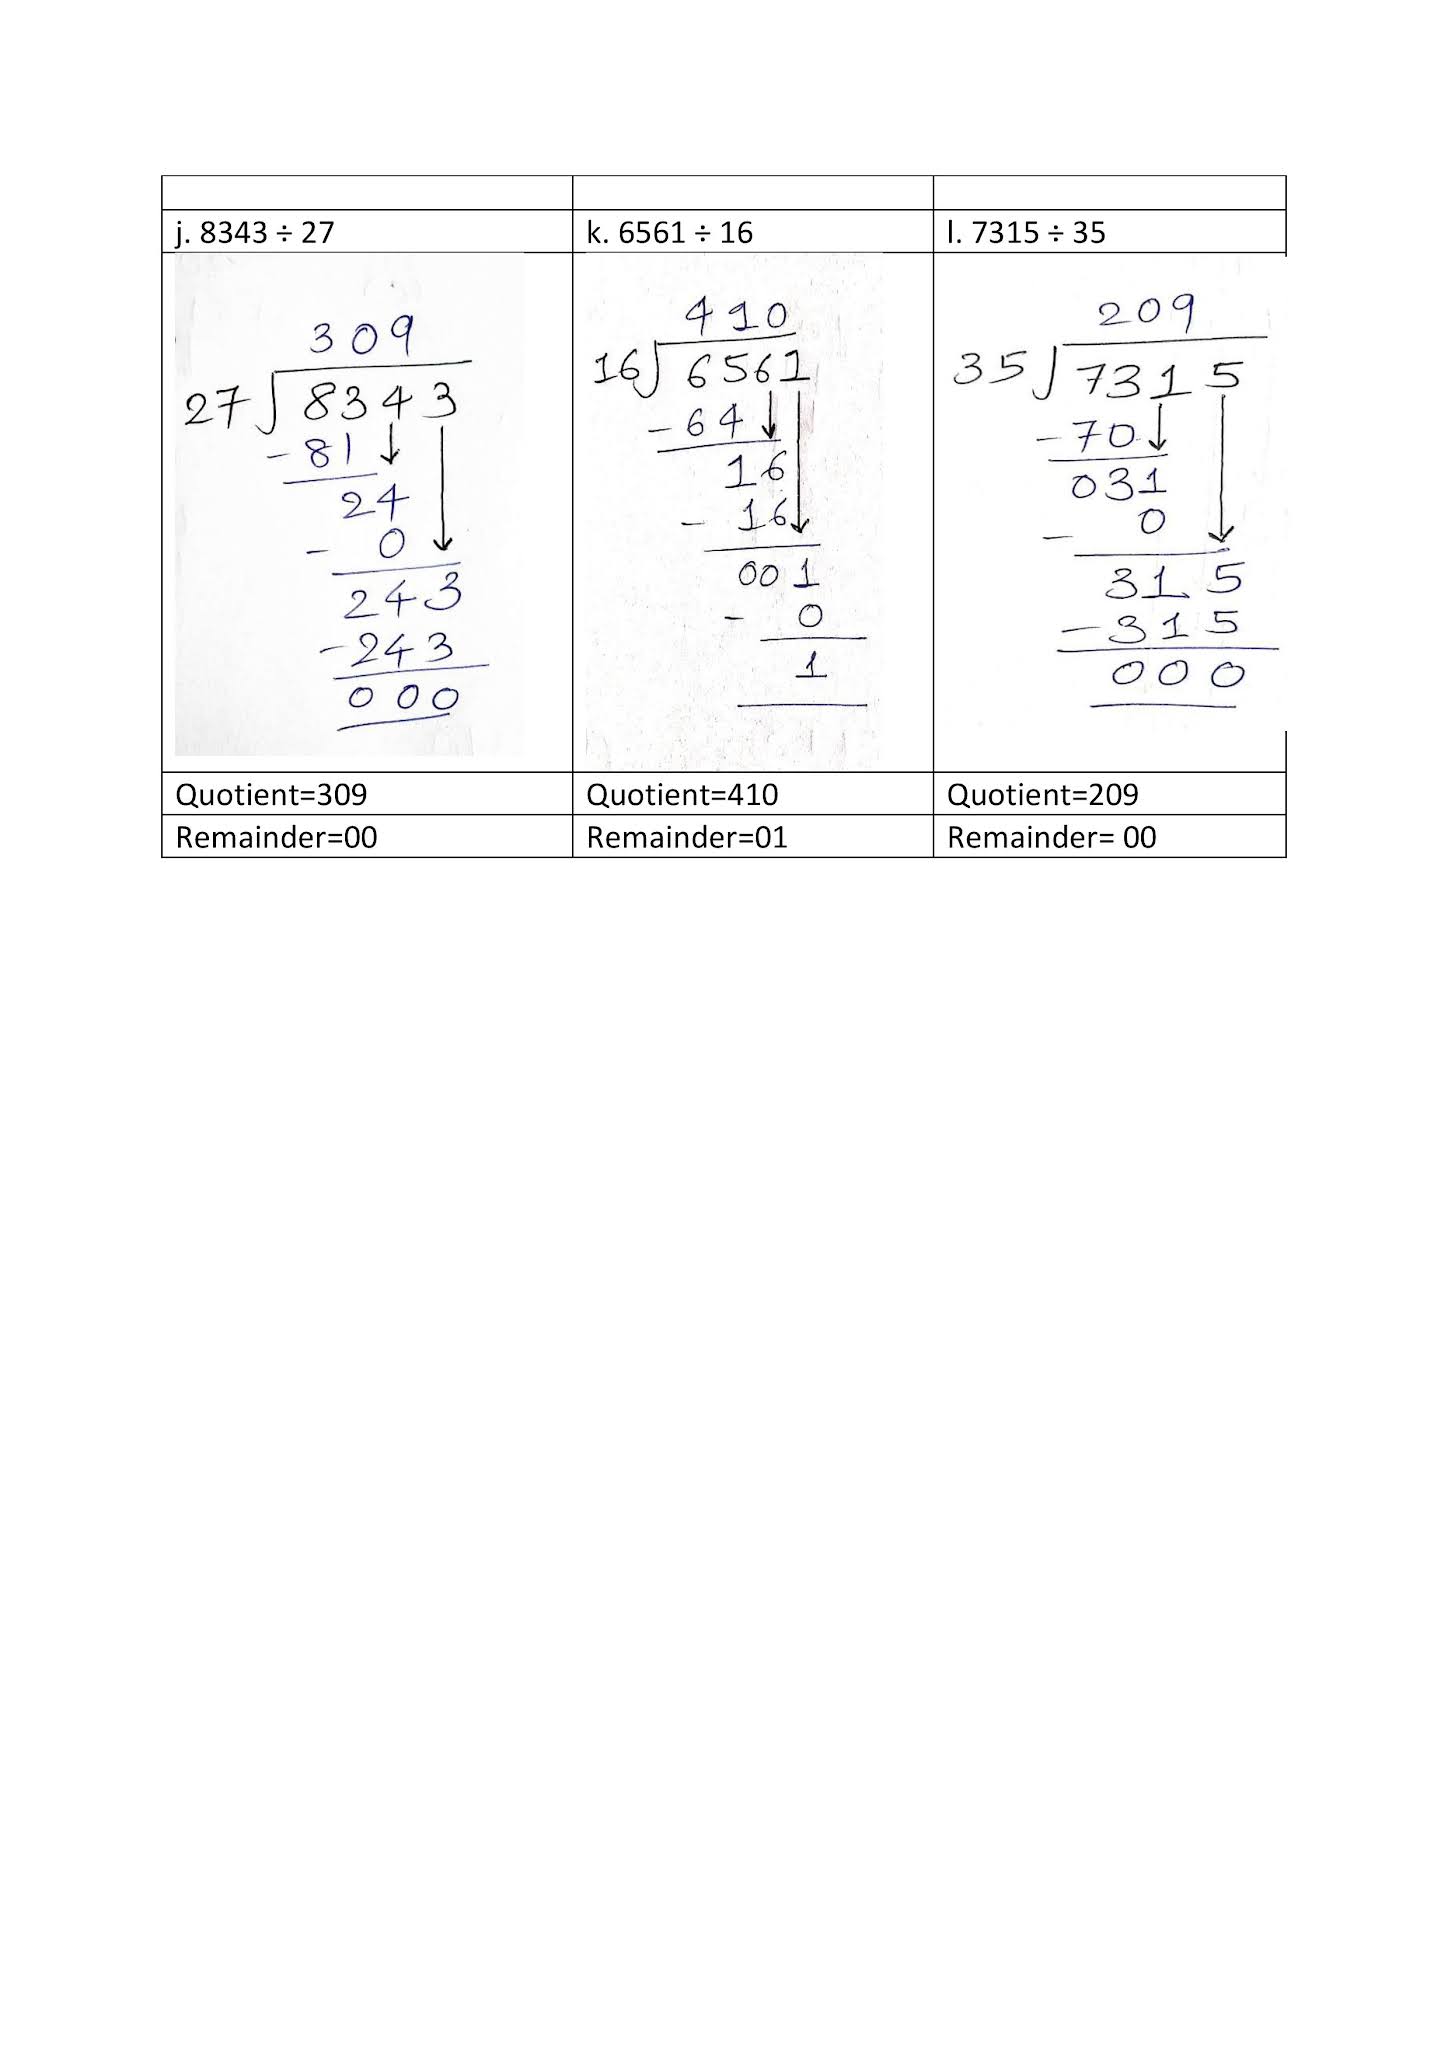 j. 8343 ÷ 27
k. 6561 ÷ 16
l. 7315 ÷ 35
309
27 8343
-81
24
- 0
243
-243
000
410
16 6561
-64
16
- 16
001
- 0
1
209
35 7315
-70
031
- 0
315
-315
000
Quotient=309
Quotient=410
Quotient=209
Remainder=00
Remainder=01
Remainder= 00